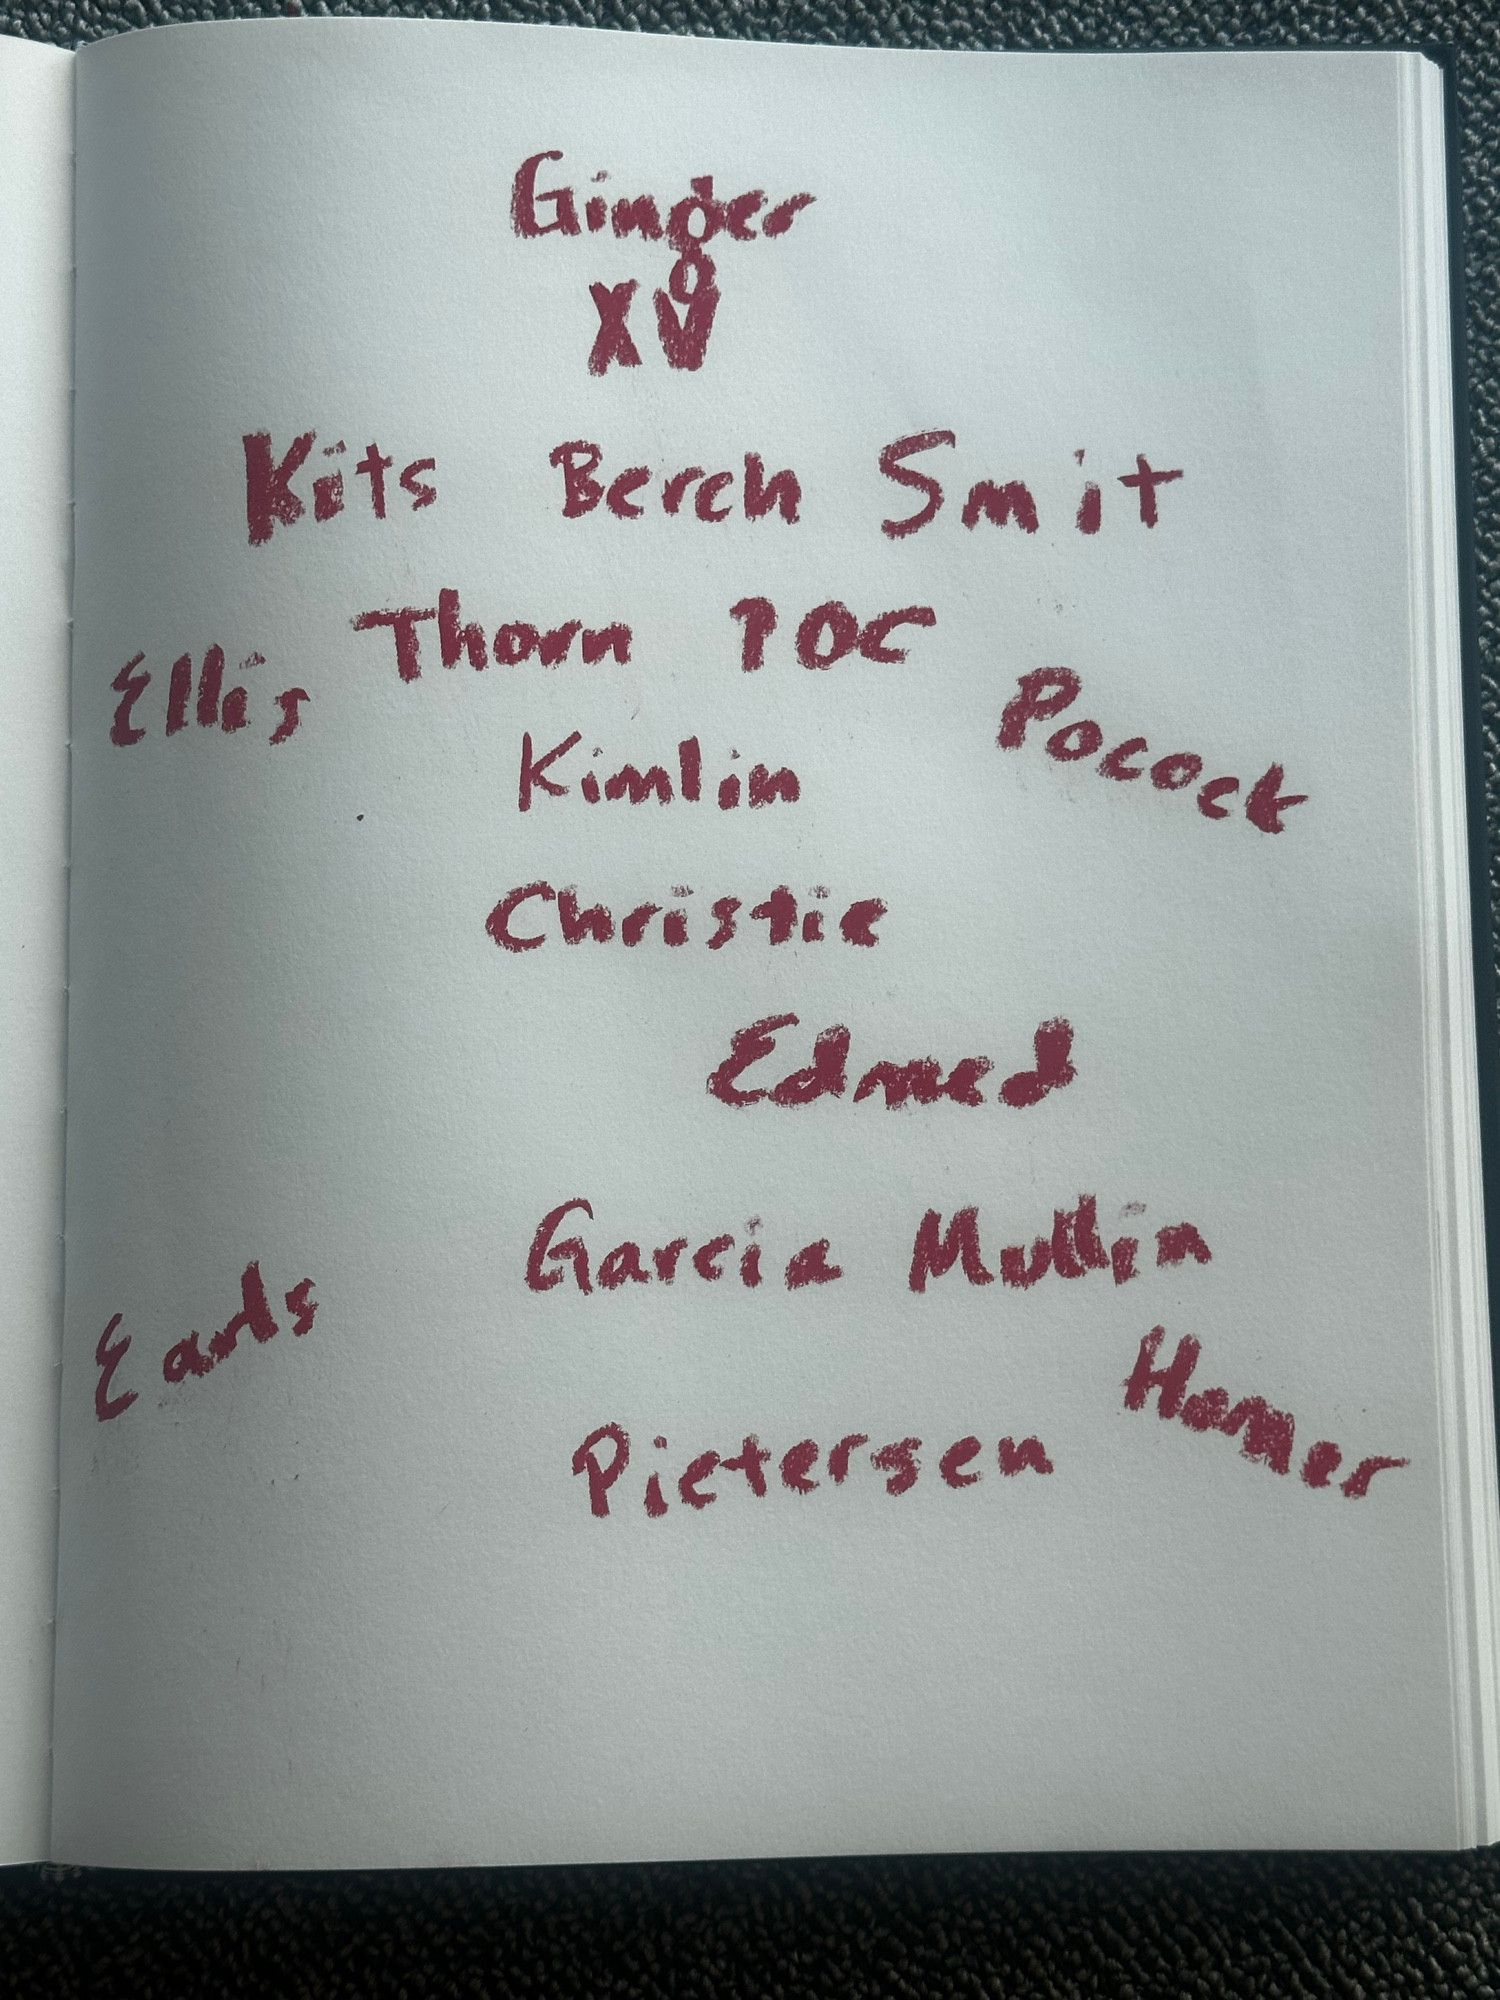 Ginger
XV
Kits Berch Smit
Thorn POC
Ellis
Pocock
Kimlin
Christie
Edmed
Garcia Mullin
Earls
Homer
Pietersen